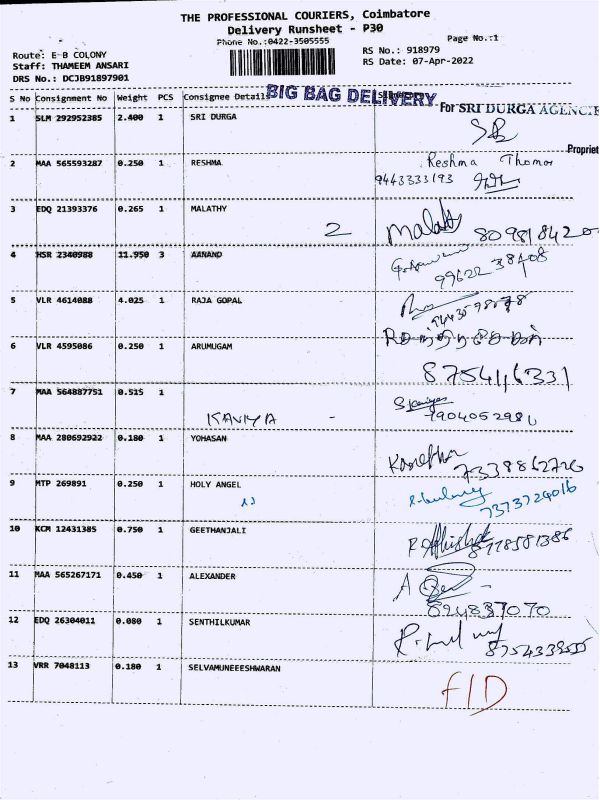 THE PROFESSIONAL COURIERS, Coimbatore
Delivery Runsheet - P30
Phone No.:0422-3505555
Page No.:1
Route: E-B COLONY
Staff: THAMEEM ANSARI
DRS No.: DCJB91897901
RS No.: 918979
RS Date: 07-Apr-2022
S No Consignment No Weight PCS Consignee Details
BIG BAG DELIVERY
For SRI DURGA AGENCIE
1 SLM 292952385 2.400 1 SRI DURGA
Propriet
2 MAA 565593287 0.250 1 RESHMA Reshma Thomas
9443333193
3 EDQ 21393376 0.265 1 MALATHY
2 Malathi 809818420
4 HSR 2340988 11.950 3 AANAND
99622 38408
5 VLR 4614088 4.025 1 RAJA GOPAL
6 VLR 4595086 0.250 1 ARUMUGAM
8754116331
7 MAA 564887751 0.515 1
KAVIYA -
8 MAA 280692922 0.180 1 YOHASAN
7338862726
9 MTP 269891 0.250 1 HOLY ANGEL
7373729016
10 KCM 12431385 0.750 1 GEETHANJALI
R Abhishek
11 MAA 565267171 0.450 1 ALEXANDER
A
894837070
12 EDQ 26304011 0.080 1 SENTHILKUMAR
13 VRR 7048113 0.180 1 SELVAMUNEEESHWARAN
F/D